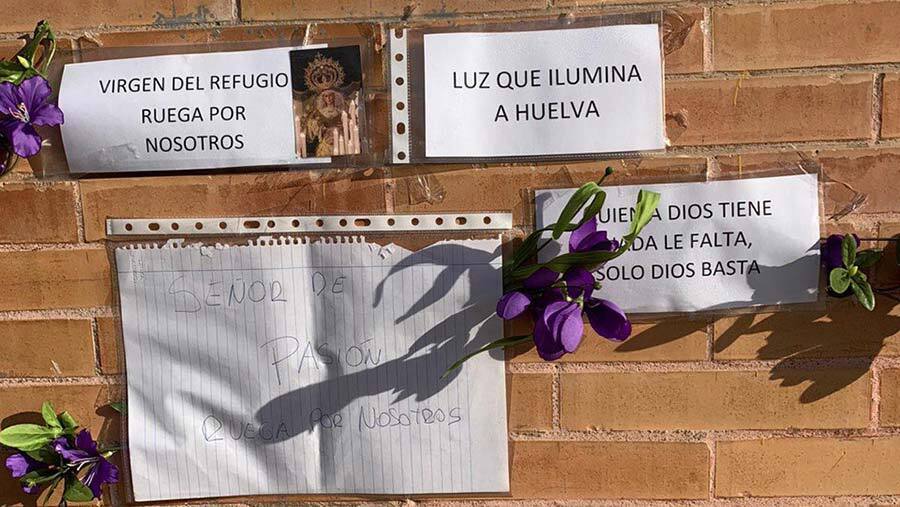 VIRGEN DEL REFUGIO
RUEGA POR
NOSOTROS
LUZ QUE ILUMINA
A HUELVA
UIEN A DIOS TIENE
ADA LE FALTA,
SOLO DIOS BASTA
SEÑOR DE
PASIÓN
RUEGA POR NOSOTROS